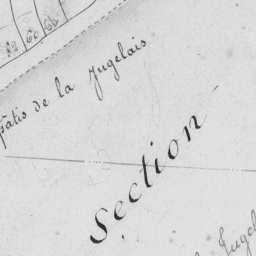 82 60 68
patis de la Jugelais
Section
la Jugel